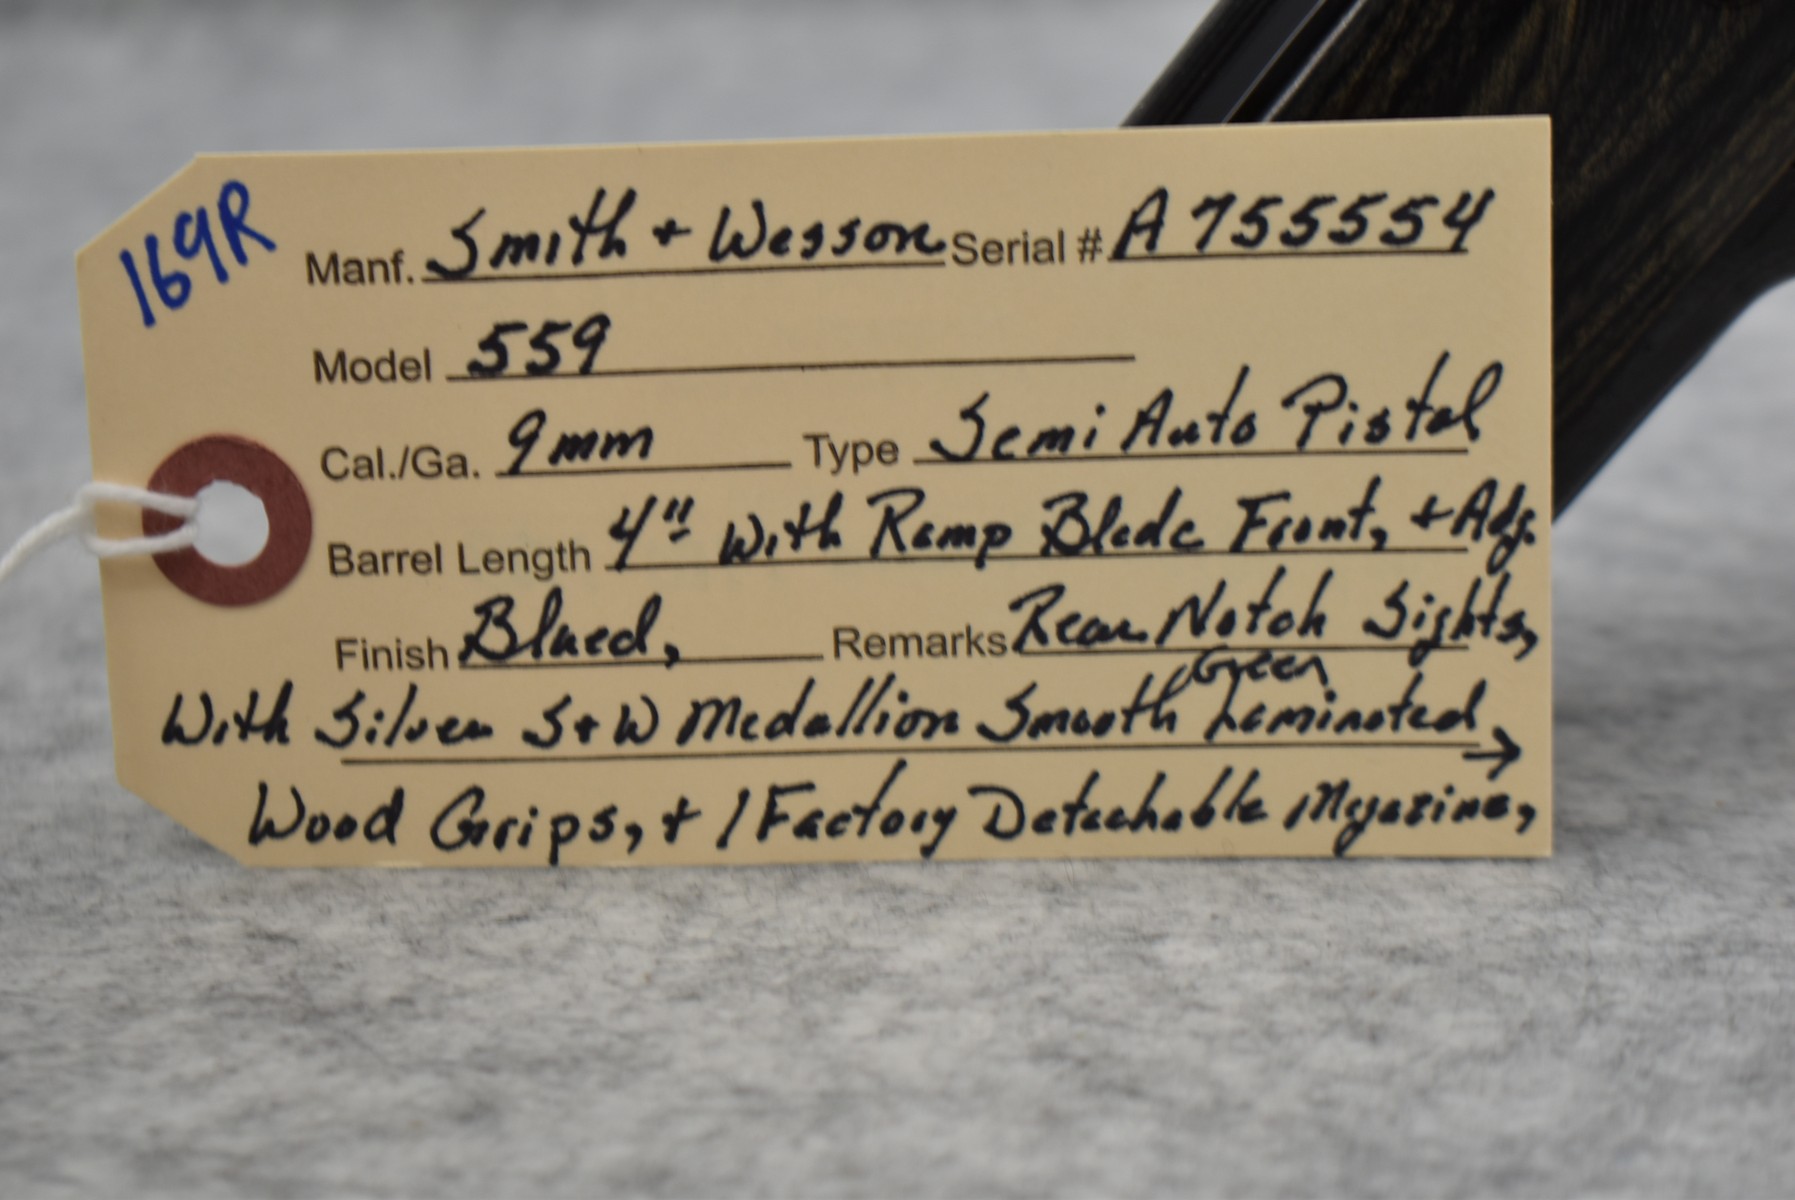 169R
Manf. Smith + Wesson Serial # A755554
Model 559
Cal./Ga. 9mm Type Semi Auto Pistol
Barrel Length 4" With Ramp Blade Front, + Adj.
Finish Blued, Remarks Rear Notch Sights,
Green
With Silver S+W Medallion Smooth Laminated →
Wood Grips, + 1 Factory Detachable Magazine,